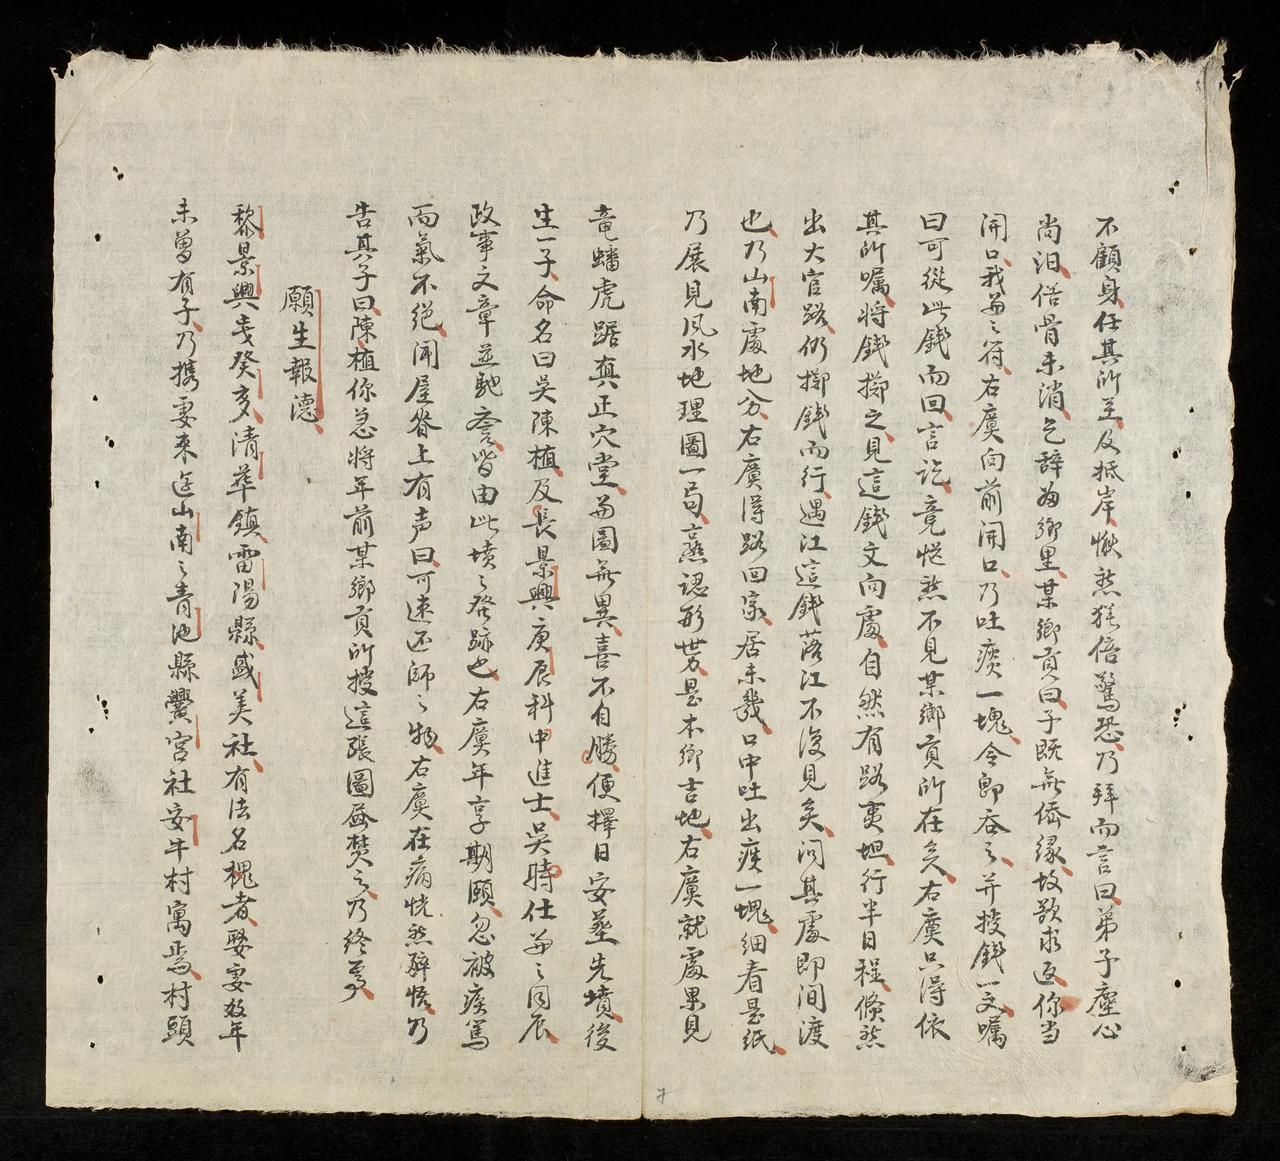 不顧身任其所至及抵岸愀然猛悟驚恐乃拜而言曰弟子塵心
尚汨俗骨未消乞辞為鄉里某鄉貢曰子既無僊縁故欲求返你当
開口我与之符右廣向前開口乃吐痰一塊令即吞之并授錢一文嘱
曰可從此錢而回言訖竟恍然不見某鄉貢所在矣右廣只得依
其所嘱将錢擲之見這錢文向處自然有路夷坦行半日程倏然
出大官路仍擲錢而行遇江這錢落江不復見矣问其處即间渡
也乃山南處地分右廣得路回家居未幾口中吐出痰一塊細看是紙
乃展見风水地理圖一局熹認形势是本鄉吉地右廣就處果見
竜蟠虎踞真正穴堂与圖無異喜不自勝便擇日安塟先墳後
生一子命名曰吳陳植及長景興庚辰科中進士吳時仕与之同辰
政事文章並馳奎皆由此墳之發跡也右廣年享期頤忽被疾篤
而氣不绝聞屋脊上有声曰可速还師之物右廣在病恍然醉悟乃
告其子曰陳植你急将年前某鄉貢所授這張圖盡焚之乃终焉
願生報德
黎景興歲癸亥清華鎮雷陽縣盛美社有法名槐者娶妻数年
未曽有子乃携妻来迋山南之青池縣黌宮社安牛村寓焉村頭